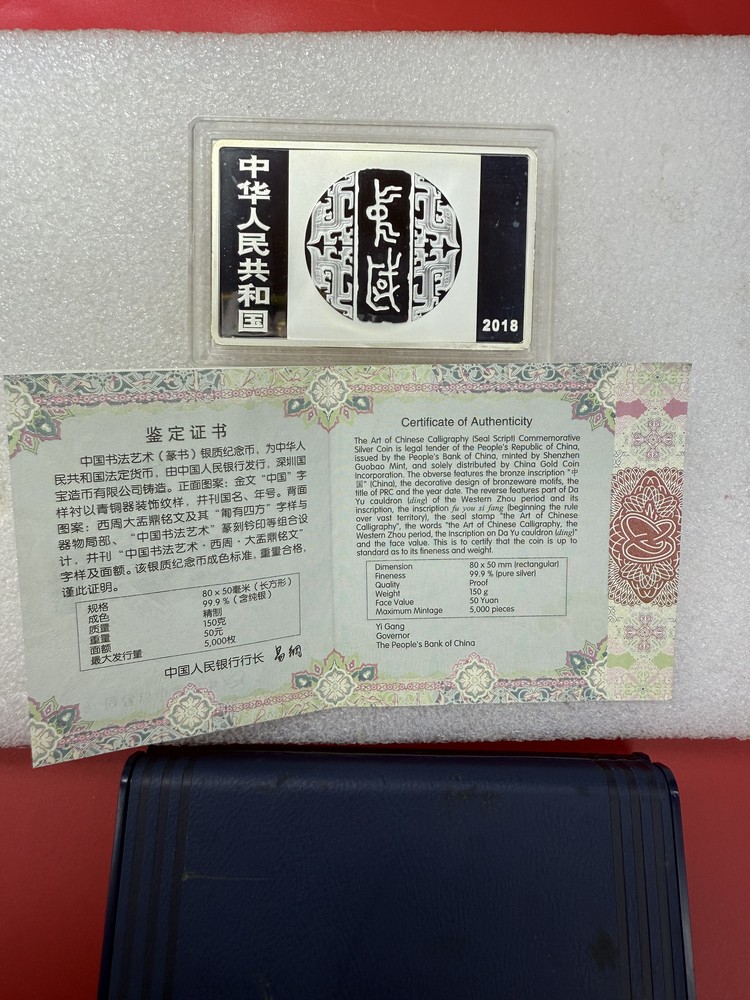 中华人民共和国
2018
鉴定证书
中国书法艺术（篆书）银质纪念币，为中华人
民共和国法定货币，由中国人民银行发行，深圳国
宝造币有限公司铸造。正面图案：金文“中国”字
样衬以青铜器装饰纹样，并刊国名、年号。背面
图案：西周大盂鼎铭文及其“匍有四方”字样与
器物局部、“中国书法艺术”篆刻钤印等组合设
计，并刊“中国书法艺术·西周·大盂鼎铭文”
字样及面额。该银质纪念币成色标准，重量合格，
谨此证明。
规格 80 x 50毫米（长方形）
成色 99.9%（含纯银）
质量 精制
重量 150克
面额 50元
最大发行量 5,000枚
中国人民银行行长 易纲
Certificate of Authenticity
The Art of Chinese Calligraphy (Seal Script) Commemorative
Silver Coin is legal tender of the People's Republic of China,
issued by the People's Bank of China, minted by Shenzhen
Guobao Mint, and solely distributed by China Gold Coin
Incorporation. The obverse features the bronze inscription "中
国" (China), the decorative design of bronzeware motifs, the
title of PRC and the year date. The reverse features part of Da
Yu cauldron (ding) of the Western Zhou period and its
inscription, the inscription fu you si fang (beginning the rule
over vast territory), the seal stamp "the Art of Chinese
Calligraphy", the words "the Art of Chinese Calligraphy, the
Western Zhou period, the Inscription on Da Yu cauldron (ding)"
and the face value. This is to certify that the coin is up to
standard as to its fineness and weight.
Dimension 80 x 50 mm (rectangular)
Fineness 99.9 % (pure silver)
Quality Proof
Weight 150 g
Face Value 50 Yuan
Maximum Mintage 5,000 pieces
Yi Gang
Governor
The People's Bank of China